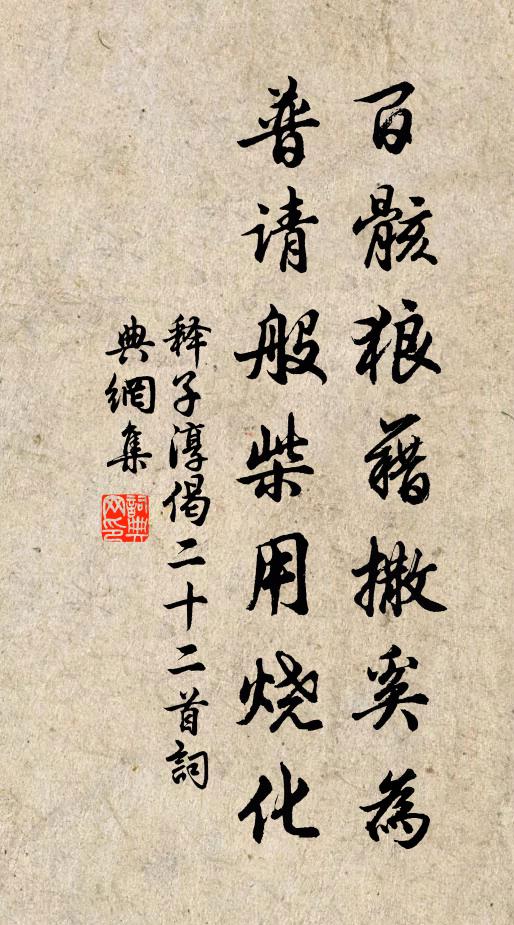 百骸狼藉撒奚为
普请般柴用烧化
释子淳偈二十二首詞
典網集
詞典网印